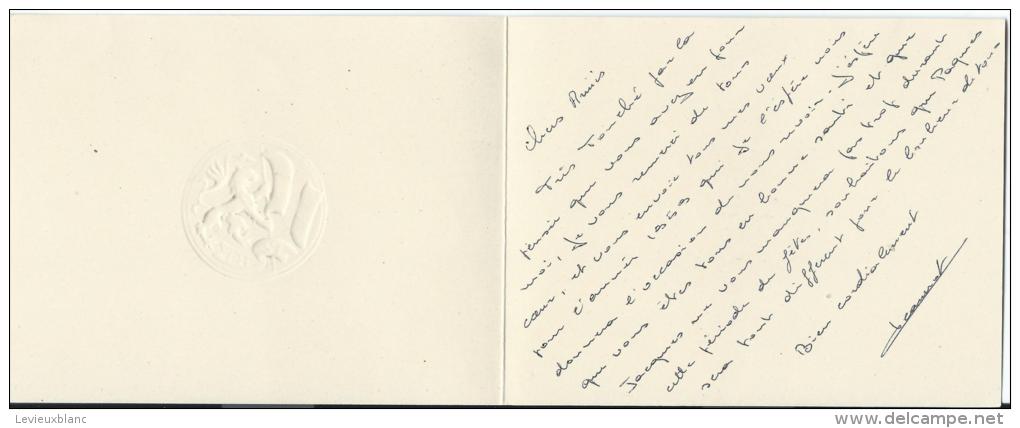 Chers Amis
Très touché par la
pensée que vous avez eu pour
moi, je vous remercie de tout
cœur, et vous envoie tous mes vœux
pour l'année 1959 qui je l'espère nous
donnera l'occasion de nous revoir. J'espère
que vous êtes tous en bonne santé et que
Jacques ne vous manquera pas trop durant
cette période de fêtes, souhaitons que Paques
sera tout différent pour le bonheur de tous
Bien cordialement
Levieuxblanc
www.delcampe.net